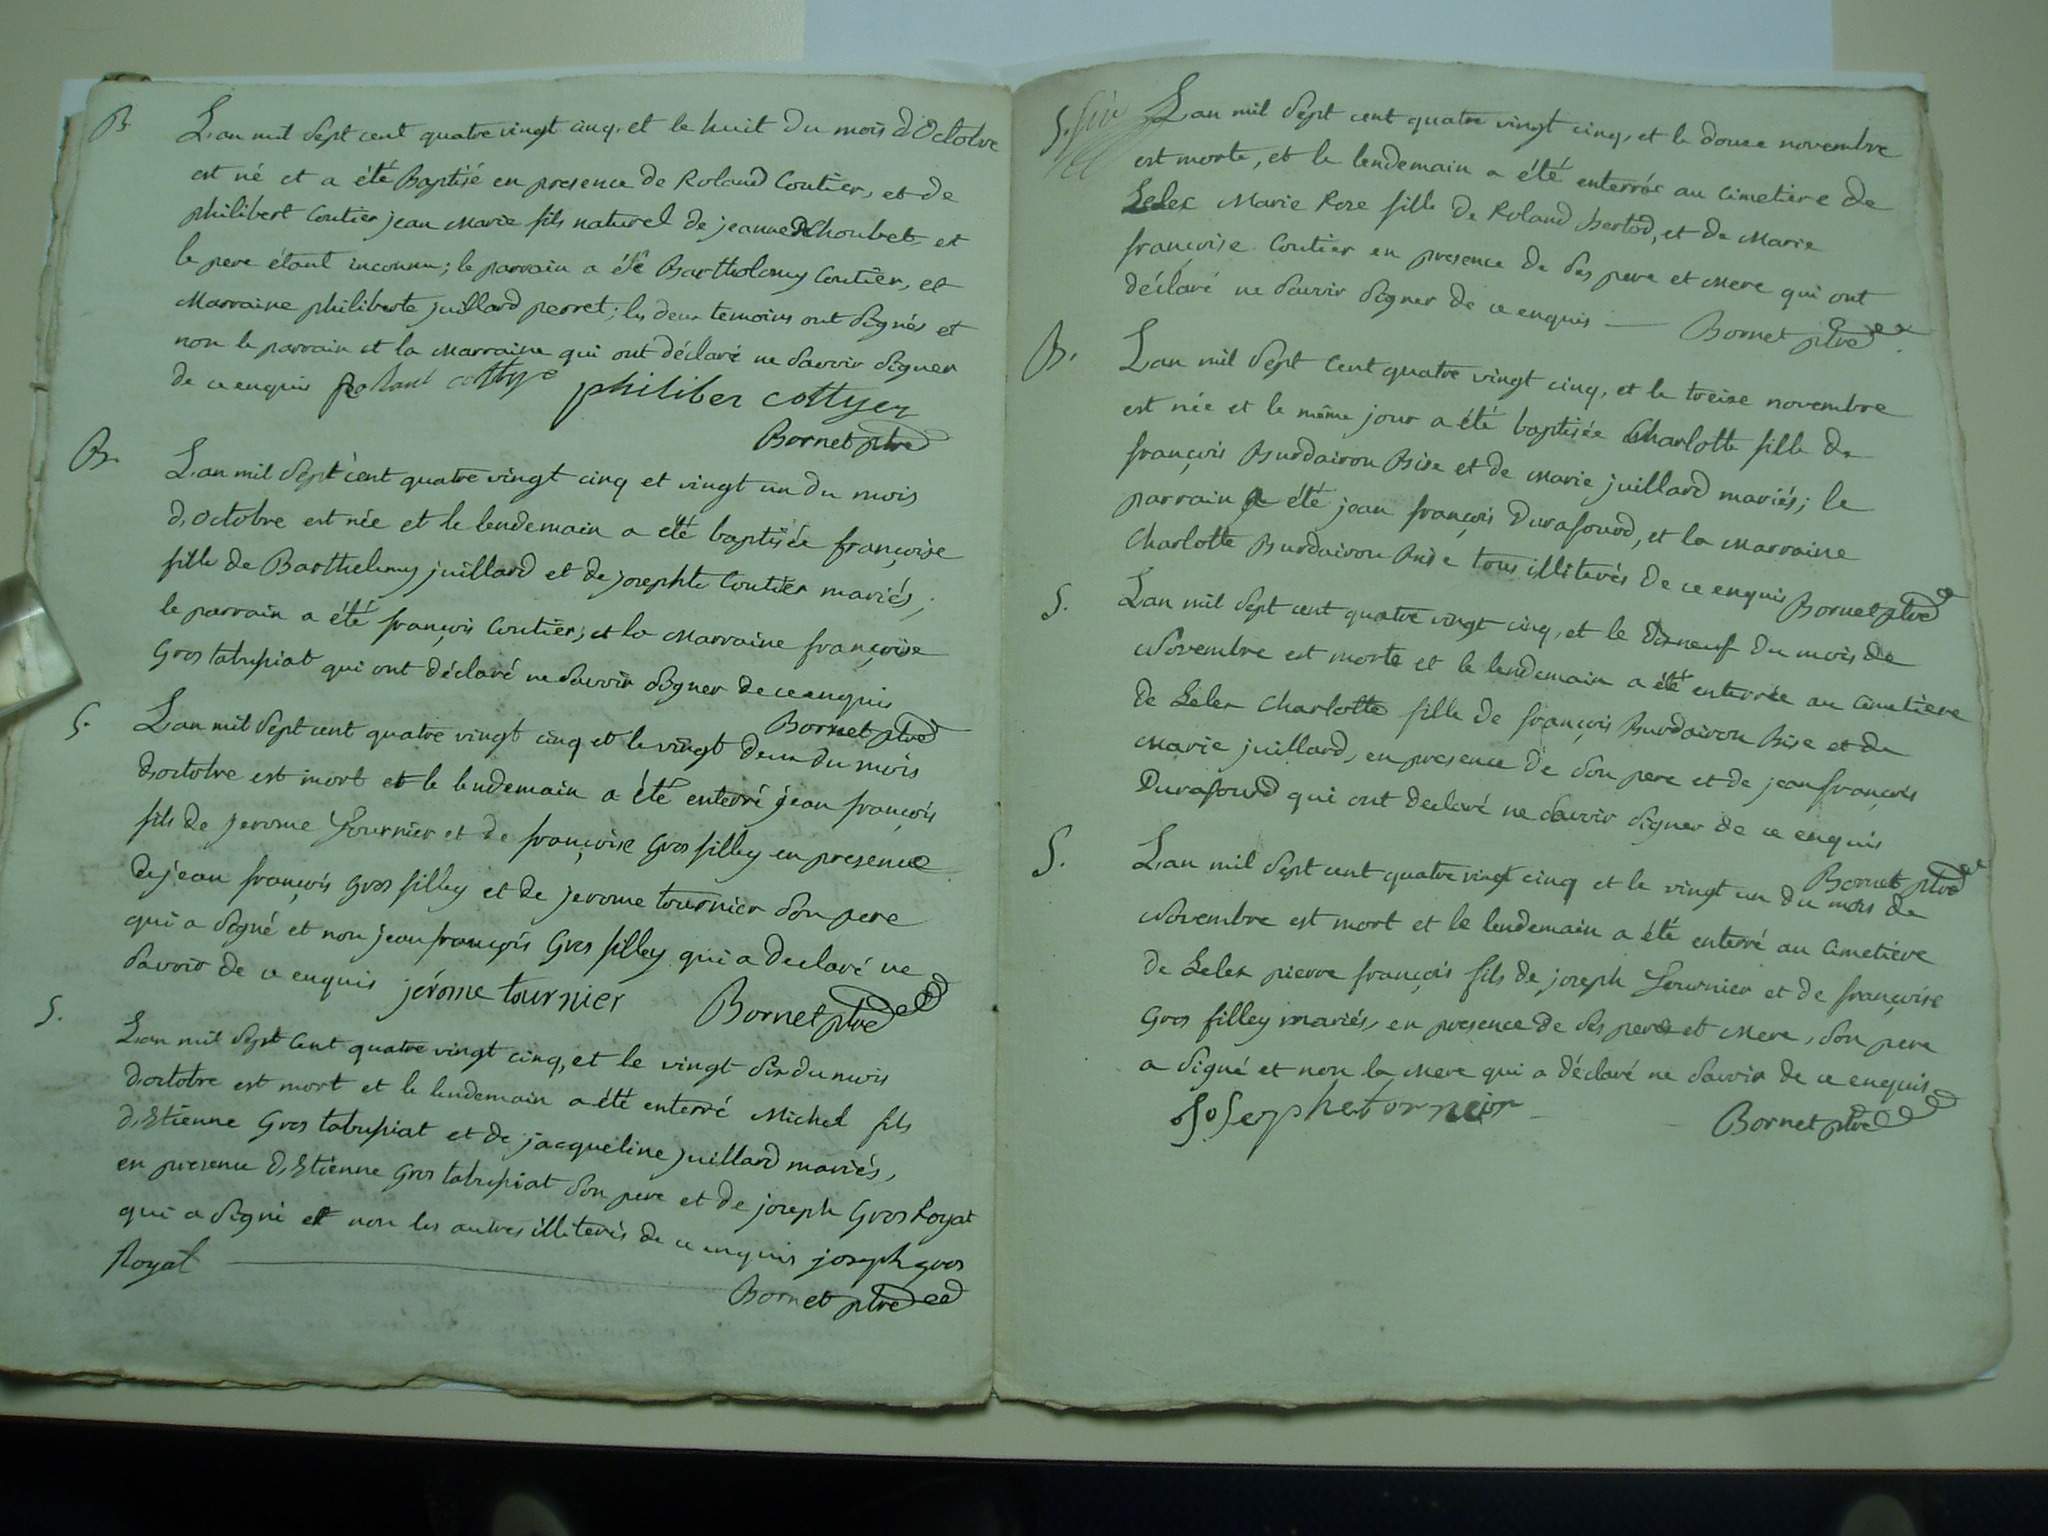 B. L'an mil sept cent quatre vingt cinq, et le huit du mois d'Octobre
est né et a été Baptisé en presence de Roland Coutier, et de
philibert Coutier jean Marie fils naturel de jeanne Choubet et
le pere étant inconnu; le parrain a été Bartholomy Coutier, et
Marraine philiberte juillard perret; les deux temoins ont signés et
non le parrain et la Marraine qui ont déclaré ne savoir signer
de ce enquis philiber cottyer
Bornet ptre
B. L'an mil sept cent quatre vingt cinq et vingt un du mois
d'Octobre est née et le lendemain a été baptisée françoise
fille de Barthelemy juillard et de josephte Coutier mariés;
le parrain a été françois Coutier; et la Marraine françoise
Gros tabussiat qui ont déclaré ne savoir signer de ce enquis
Bornet ptre
S. L'an mil sept cent quatre vingt cinq et le vingt deux du mois
d'octobre est mort et le lendemain a été enterré jean françois
fils de jerome Tournier et de françoise Gros filley en presence
de jean françois Gros filley et de jerome tournier son pere
qui a signé et non jean françois Gros filley qui a declaré ne
savoir de ce enquis jérome tournier Bornet ptre
S. L'an mil sept Cent quatre vingt cinq, et le vingt six du mois
d'octobre est mort et le lendemain a été enterré Michel fils
d'Etienne Gros tabussiat et de jacqueline juillard mariés,
en presence d'Etienne Gros tabussiat son pere et de joseph Gros Royat
qui a signé et non les autres illiterés de ce enquis joseph gros
Royat
Bornet ptre
S. L'an mil sept cent quatre vingt cinq, et le douze novembre
est morte, et le lendemain a été enterrée au Cimetiere de
Lelex Marie Roze fille de Roland hertod, et de Marie
françoise Coutier en presence de ses pere et Mere qui ont
déclaré ne savoir signer de ce enquis — Bornet ptre
B. L'an mil sept Cent quatre vingt cinq, et le treize novembre
est née et le même jour a été baptisée Charlotte fille de
françois Burdairon Bise et de Marie juillard mariés; le
parrain a été jean françois Durafourd, et la Marraine
Charlotte Burdairon Bise tous illiterés de ce enquis Bornet ptre
S. L'an mil sept cent quatre vingt cinq, et le dixneuf du mois de
Novembre est morte et le lendemain a été enterrée au Cimetière
de Lelex Charlotte fille de françois Burdairon Bise et de
Marie juillard, en presence de son pere et de jean françois
Durafourd qui ont declaré ne savoir signer de ce enquis
Bornet ptre
S. L'an mil sept cent quatre vingt cinq et le vingt un du mois de
Novembre est mort et le lendemain a été enterré au Cimetiére
de Lelex pierre françois fils de joseph Tournier et de françoise
Gros filley mariés, en presence de ses pere et Mere, son pere
a signé et non la Mere qui a déclaré ne savoir de ce enquis
Bornet ptre